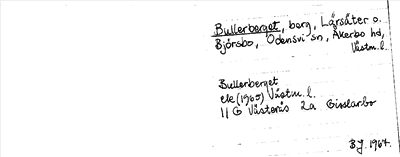 Bullerberget, berg, Lårsäter o.
Björsbo, Odensvi sn, Åkerbo hd,
Västm. l.
Bullerberget
ek (1965) Västm. l.
11 G Västerås 2a Gisslarbo
B.J. 1967.